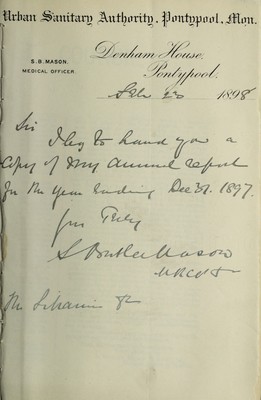 Urban Sanitary Authority, Pontypool, Mon.
S. B. MASON.
MEDICAL OFFICER.
Denham House,
Pontypool,
Feb 23 1898
Sir
I beg to hand you a
Copy of my annual report
for the Year Ending Dec 31. 1897.
Yrs Truly
S Butler Mason
MRCS &
The Librarian &c